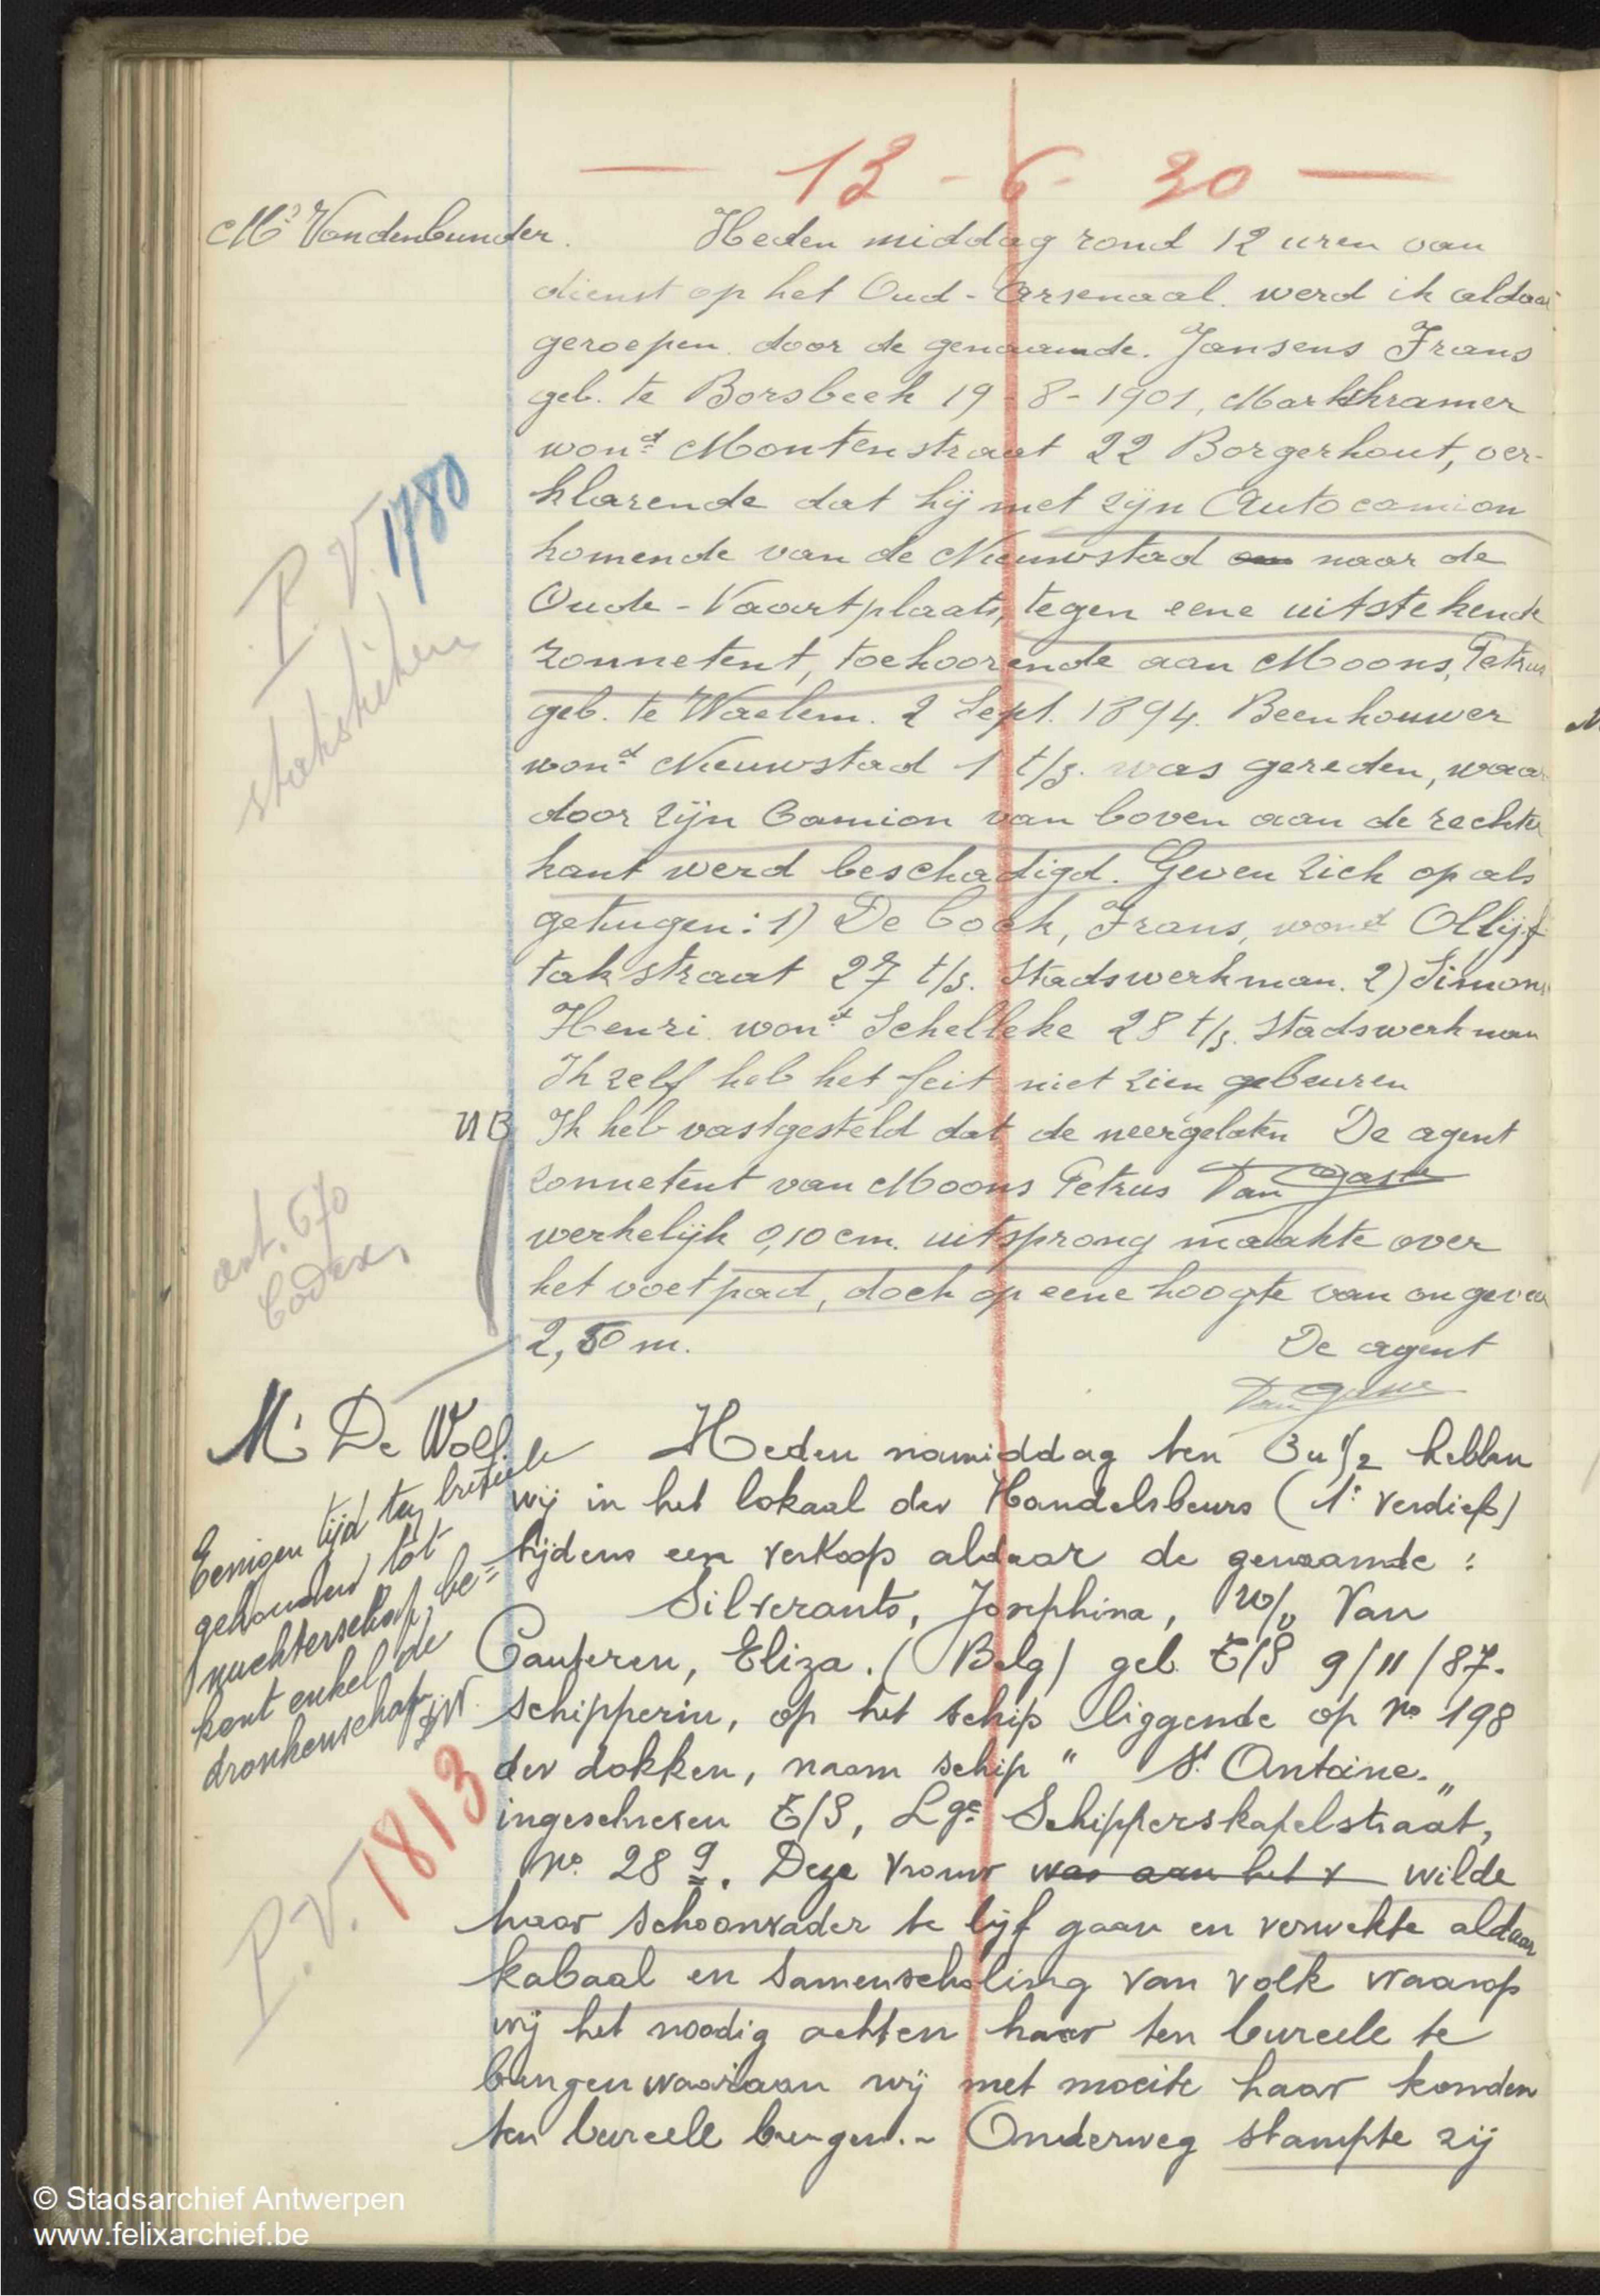 — 13 - 6 - 30 —
Mr Vandenbunder.
Heden middag rond 12 uren van
dienst op het Oud-Arsenaal. werd ik aldaar
geroepen door de genaamde. Jansens Frans
geb. te Borsbeek 19-8-1901, Marktkramer
wond Montenstraat 22 Borgerhout, ver-
klarende dat hij met zijn Autocamion
komende van de Nieuwstad naar de
Oude-Vaartplaats, tegen eene uitstekende
zonnetent, toehoorende aan Moons, Petrus
geb. te Waelem. 2 Sept. 1894. Beenhouwer
wond Nieuwstad 1 t/s. was gereden, waar
door zijn Camion van boven aan de rechter
kant werd beschadigd. Geven zich op als
getuigen: 1) De Cock, Frans, wond Olijf
takstraat 27 t/s. Stadswerkman. 2) Simons
Henri wond Schelleke 28 t/s. Stadswerkman
Ik zelf heb het feit niet zien gebeuren
De agent
P.V. 1780
statistieken
NB Ik heb vastgesteld dat de neergelaten
zonnetent van Moons Petrus
werkelijk 0,10 cm. uitsprong maakte over
het voetpad, doch op eene hoogte van ongeveer
2,50 m.
De agent
art. 670
Codex.
Mr De Wolf.
Heden namiddag ten 3 u 1/2 hebben
wij in het lokaal der Handelsbeurs (1e verdiep)
tijdens een verkoop aldaar de genaamde :
Silverants, Josephina, w/v Van
Cauteren, Eliza. (Belg) geb. t/S 9/11/87.
schipperin, op het schip liggende op No 198
der dokken, naam schip " St Antoine. „
ingeschreven t/S, Lge Schipperskapelstraat,
No 28 9. Deze vrouw was aan het v wilde
haar schoonvader te lijf gaan en verwekte aldaar
kabaal en samenscholing van volk waarop
wij het noodig achtten haar ten bureele te
brengen waaraan wij met moeite haar konden
ten bureele brengen.- Onderweg stampte zij
Eenigen tijd ten bureele
gehouden tot
nuchterschap, be=
kent enkel de
dronkenschap
P.V. 1813
© Stadsarchief Antwerpen
www.felixarchief.be